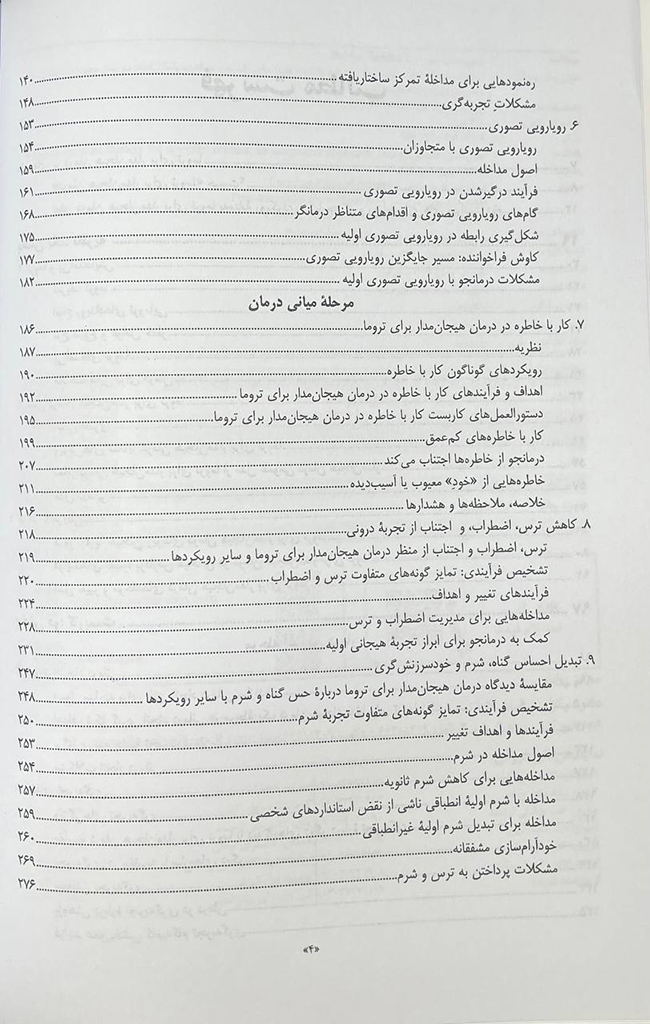 ره‌نمودهایی برای مداخلهٔ تمرکز ساختاریافته ۱۴۰
مشکلاتِ تجربه‌گری ۱۴۸
۶. رویارویی تصوری ۱۵۳
رویارویی تصوری با متجاوزان ۱۵۴
اصول مداخله ۱۵۹
فرآیند درگیرشدن در رویارویی تصوری ۱۶۱
گام‌های رویارویی تصوری و اقدام‌های متناظر درمانگر ۱۶۸
شکل‌گیری رابطه در رویارویی تصوری اولیه ۱۷۵
کاوش فراخواننده: مسیر جایگزین رویارویی تصوری ۱۷۷
مشکلات درمانجو با رویارویی تصوری اولیه ۱۸۲
مرحلهٔ میانی درمان
۷. کار با خاطره در درمان هیجان‌مدار برای تروما ۱۸۶
نظریه ۱۸۷
رویکردهای گوناگون کار با خاطره ۱۹۰
اهداف و فرآیندهای کار با خاطره در درمان هیجان‌مدار برای تروما ۱۹۲
دستورالعمل‌های کاربست کار با خاطره در درمان هیجان‌مدار برای تروما ۱۹۵
کار با خاطره‌های کم‌عمق ۱۹۹
درمانجو از خاطره‌ها اجتناب می‌کند ۲۰۷
خاطره‌هایی از «خودِ» معیوب یا آسیب‌دیده ۲۱۱
خلاصه، ملاحظه‌ها و هشدارها ۲۱۶
۸. کاهش ترس، اضطراب، و اجتناب از تجربهٔ درونی ۲۱۸
ترس، اضطراب و اجتناب از منظر درمان هیجان‌مدار برای تروما و سایر رویکردها ۲۱۹
تشخیص فرآیندی: تمایز گونه‌های متفاوت ترس و اضطراب ۲۲۰
فرآیندهای تغییر و اهداف ۲۲۴
مداخله‌هایی برای مدیریت اضطراب و ترس ۲۲۸
کمک به درمانجو برای ابراز تجربهٔ هیجانی اولیه ۲۳۱
۹. تبدیل احساس گناه، شرم و خودسرزنش‌گری ۲۴۷
مقایسهٔ دیدگاه درمان هیجان‌مدار برای تروما دربارهٔ حس گناه و شرم با سایر رویکردها ۲۴۸
تشخیص فرآیندی: تمایز گونه‌های متفاوت تجربهٔ شرم ۲۵۰
فرآیندها و اهداف تغییر ۲۵۳
اصول مداخله در شرم ۲۵۴
مداخله‌هایی برای کاهش شرم ثانویه ۲۵۷
مداخله با شرم اولیهٔ انطباقی ناشی از نقض استانداردهای شخصی ۲۵۹
مداخله برای تبدیل شرم اولیهٔ غیرانطباقی ۲۶۰
خودآرام‌سازی مشفقانه ۲۶۹
مشکلات پرداختن به ترس و شرم ۲۷۶
«۴»